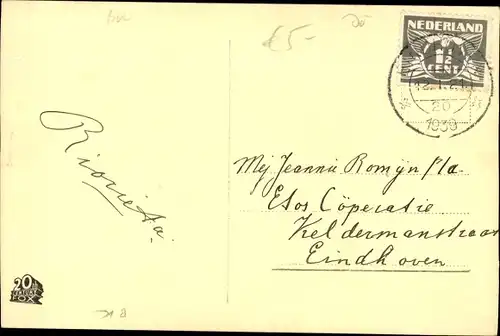 €5-
NEDERLAND
1½
CENT
20
1939
Riorieta.
Mej Jeannie Romijn p/a.
Etos Cöperatie
Keldermanstraat
Eindhoven
20th
CENTURY
FOX